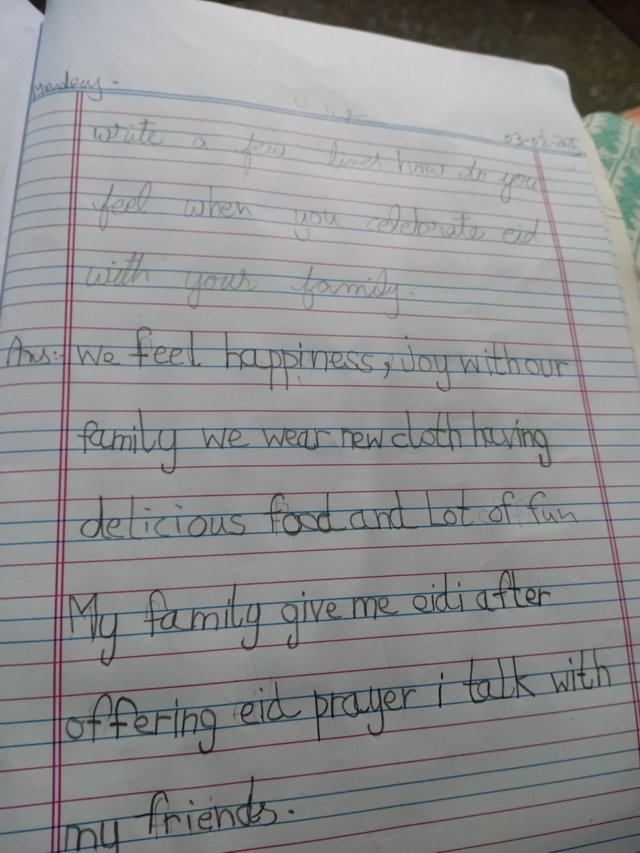 Monday
write a few lines how do you
feel when you celebrate eid
with your family.
Ans:- We feel happiness, joy with our
family we wear new cloth having
delicious food and Lot of fun
My family give me eidi after
offering eid prayer i talk with
my friends.